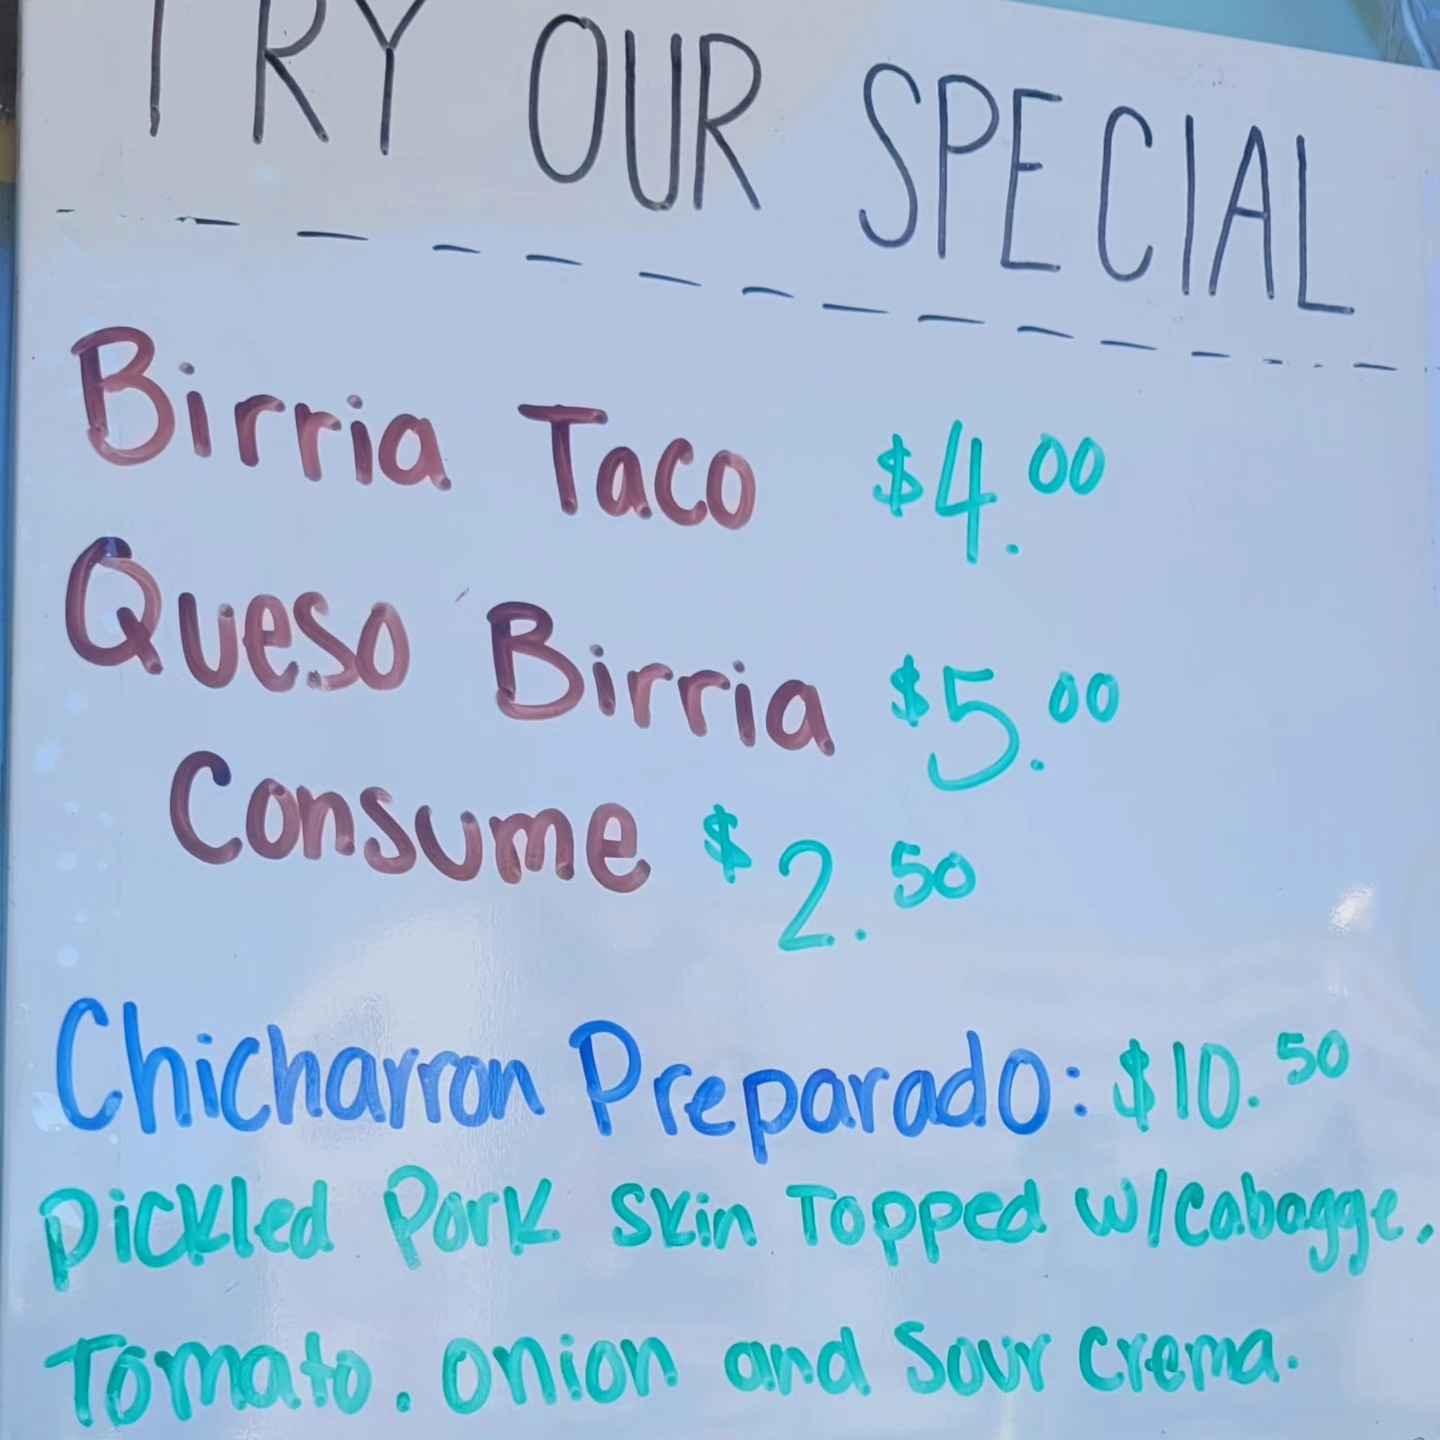 TRY OUR SPECIAL
Birria Taco $4.00
Queso Birria $5.00
Consume $2.50
Chicharron Preparado: $10.50
Pickled Pork Skin Topped w/cabagge,
Tomato, onion and Sour Crema.